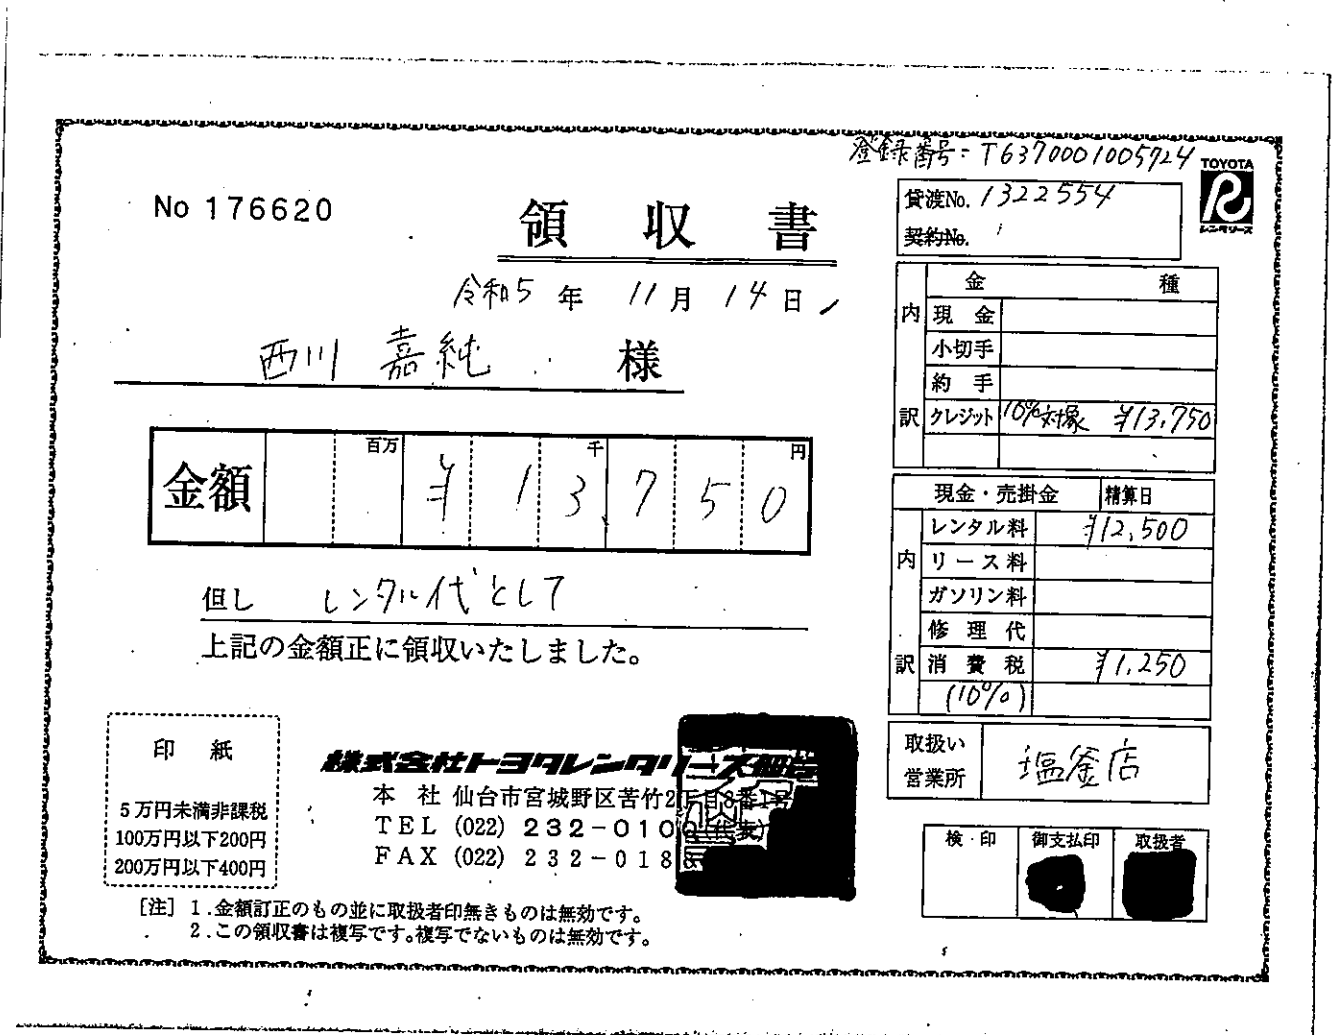 登録番号：T6370001005724
TOYOTA
レンタリース
No 176620
領収書
貸渡No. 1322554
契約No.
令和5年 11月 14日
西川 嘉純 様
金額 百万 千 円
¥13,750
但し レンタル代として
上記の金額正に領収いたしました。
内訳
金種
現金
小切手
約手
クレジット 10%対象 ¥13,750
現金・売掛金 精算日
内訳
レンタル料 ¥12,500
リース料
ガソリン料
修理代
消費税 ¥1,250
(10%)
取扱い営業所 塩釜店
印紙
5万円未満非課税
100万円以下200円
200万円以下400円
株式会社トヨタレンタリース仙台
本社 仙台市宮城野区苦竹2丁目8番1号
TEL (022) 232-0100 (代表)
FAX (022) 232-018
検・印 御支払印 取扱者
[注] 1.金額訂正のもの並に取扱者印無きものは無効です。
2.この領収書は複写です。複写でないものは無効です。